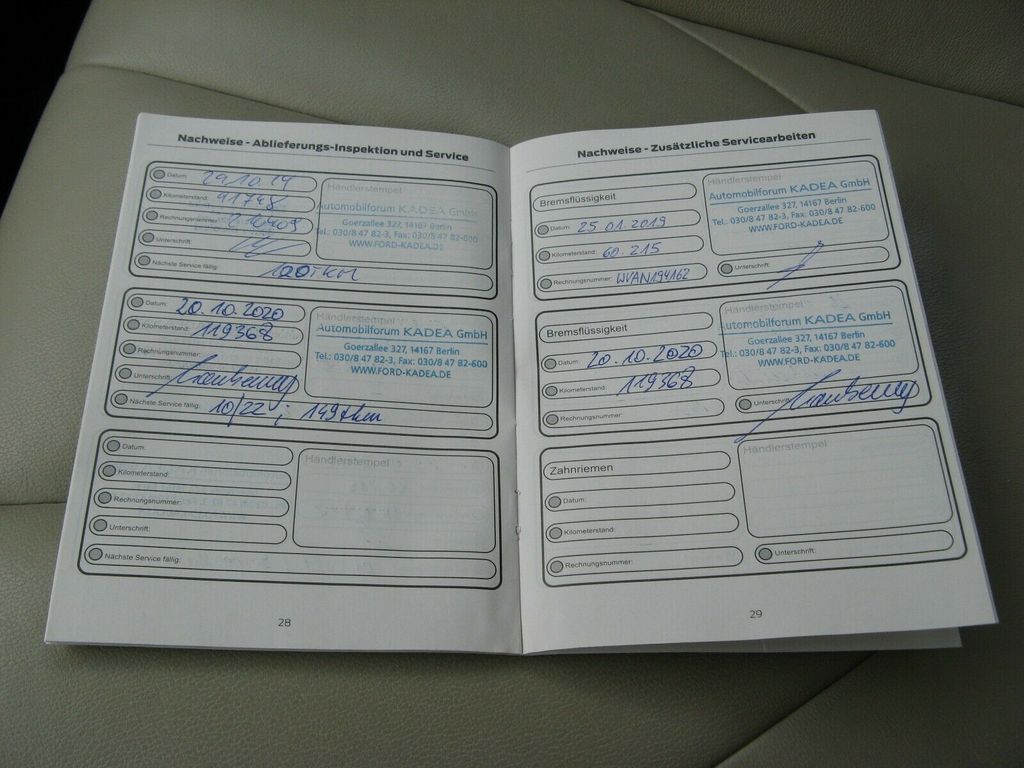 Nachweise - Ablieferungs-Inspektion und Service
Datum: 29.10.19
Kilometerstand: 91748
Rechnungsnummer:
Unterschrift:
Nächste Service fällig: 120TKM
Händlerstempel
Automobilforum KADEA GmbH
Goerzallee 327, 14167 Berlin
Tel.: 030/8 47 82-3, Fax: 030/8 47 82-600
WWW.FORD-KADEA.DE
Datum: 20.10.2020
Kilometerstand: 119368
Rechnungsnummer:
Unterschrift:
Nächste Service fällig: 10/22 ; 149tkm
Händlerstempel
Automobilforum KADEA GmbH
Goerzallee 327, 14167 Berlin
Tel.: 030/8 47 82-3, Fax: 030/8 47 82-600
WWW.FORD-KADEA.DE
Datum:
Kilometerstand:
Rechnungsnummer:
Unterschrift:
Nächste Service fällig:
Händlerstempel
28
Nachweise - Zusätzliche Servicearbeiten
Bremsflüssigkeit
Datum: 25.01.2019
Kilometerstand: 60.215
Rechnungsnummer: WVAN194162
Händlerstempel
Automobilforum KADEA GmbH
Goerzallee 327, 14167 Berlin
Tel.: 030/8 47 82-3, Fax: 030/8 47 82-600
WWW.FORD-KADEA.DE
Unterschrift:
Bremsflüssigkeit
Datum: 20.10.2020
Kilometerstand: 119368
Rechnungsnummer:
Händlerstempel
utomobilforum KADEA GmbH
Goerzallee 327, 14167 Berlin
el.: 030/8 47 82-3, Fax: 030/8 47 82-600
WWW.FORD-KADEA.DE
Unterschrift:
Zahnriemen
Datum:
Kilometerstand:
Rechnungsnummer:
Händlerstempel
Unterschrift:
29